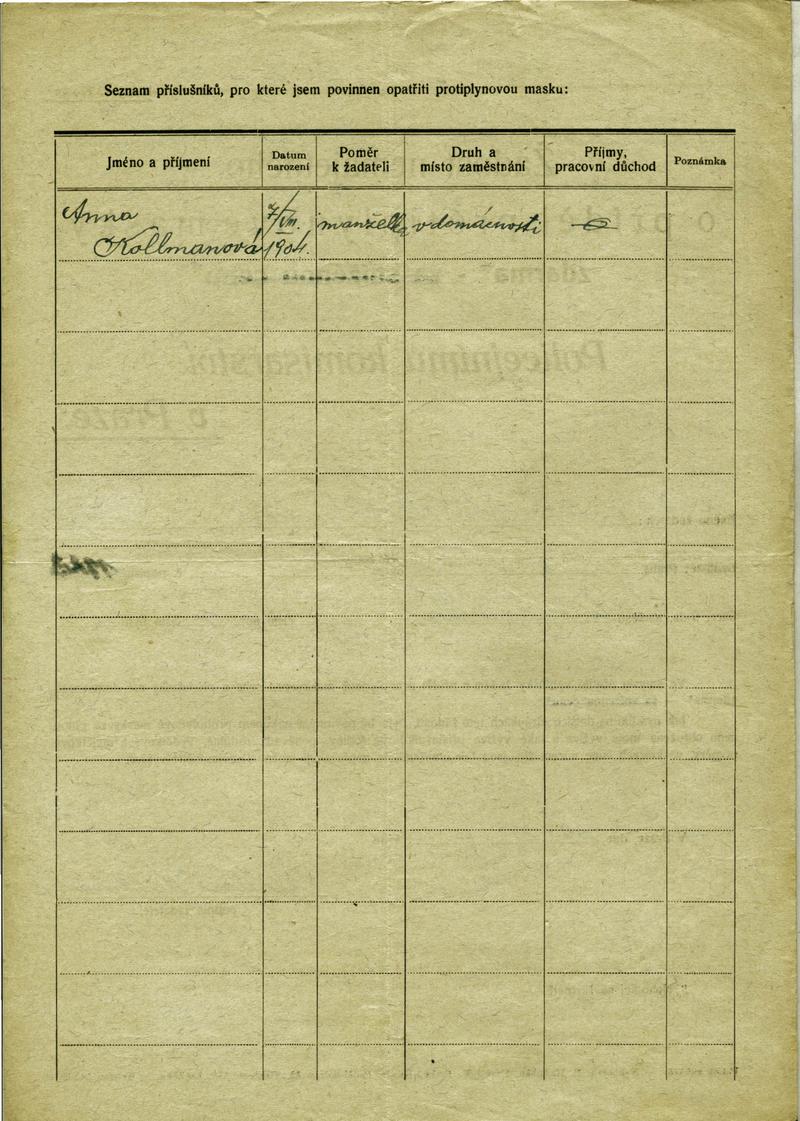 Seznam příslušníků, pro které jsem povinnen opatřiti protiplynovou masku:
Jméno a příjmení
Datum
narození
Poměr
k žadateli
Druh a
místo zaměstnání
Příjmy,
pracovní důchod
Poznámka
Anna
Kollmanová
7/VII.
1904.
manželka
v domácnosti